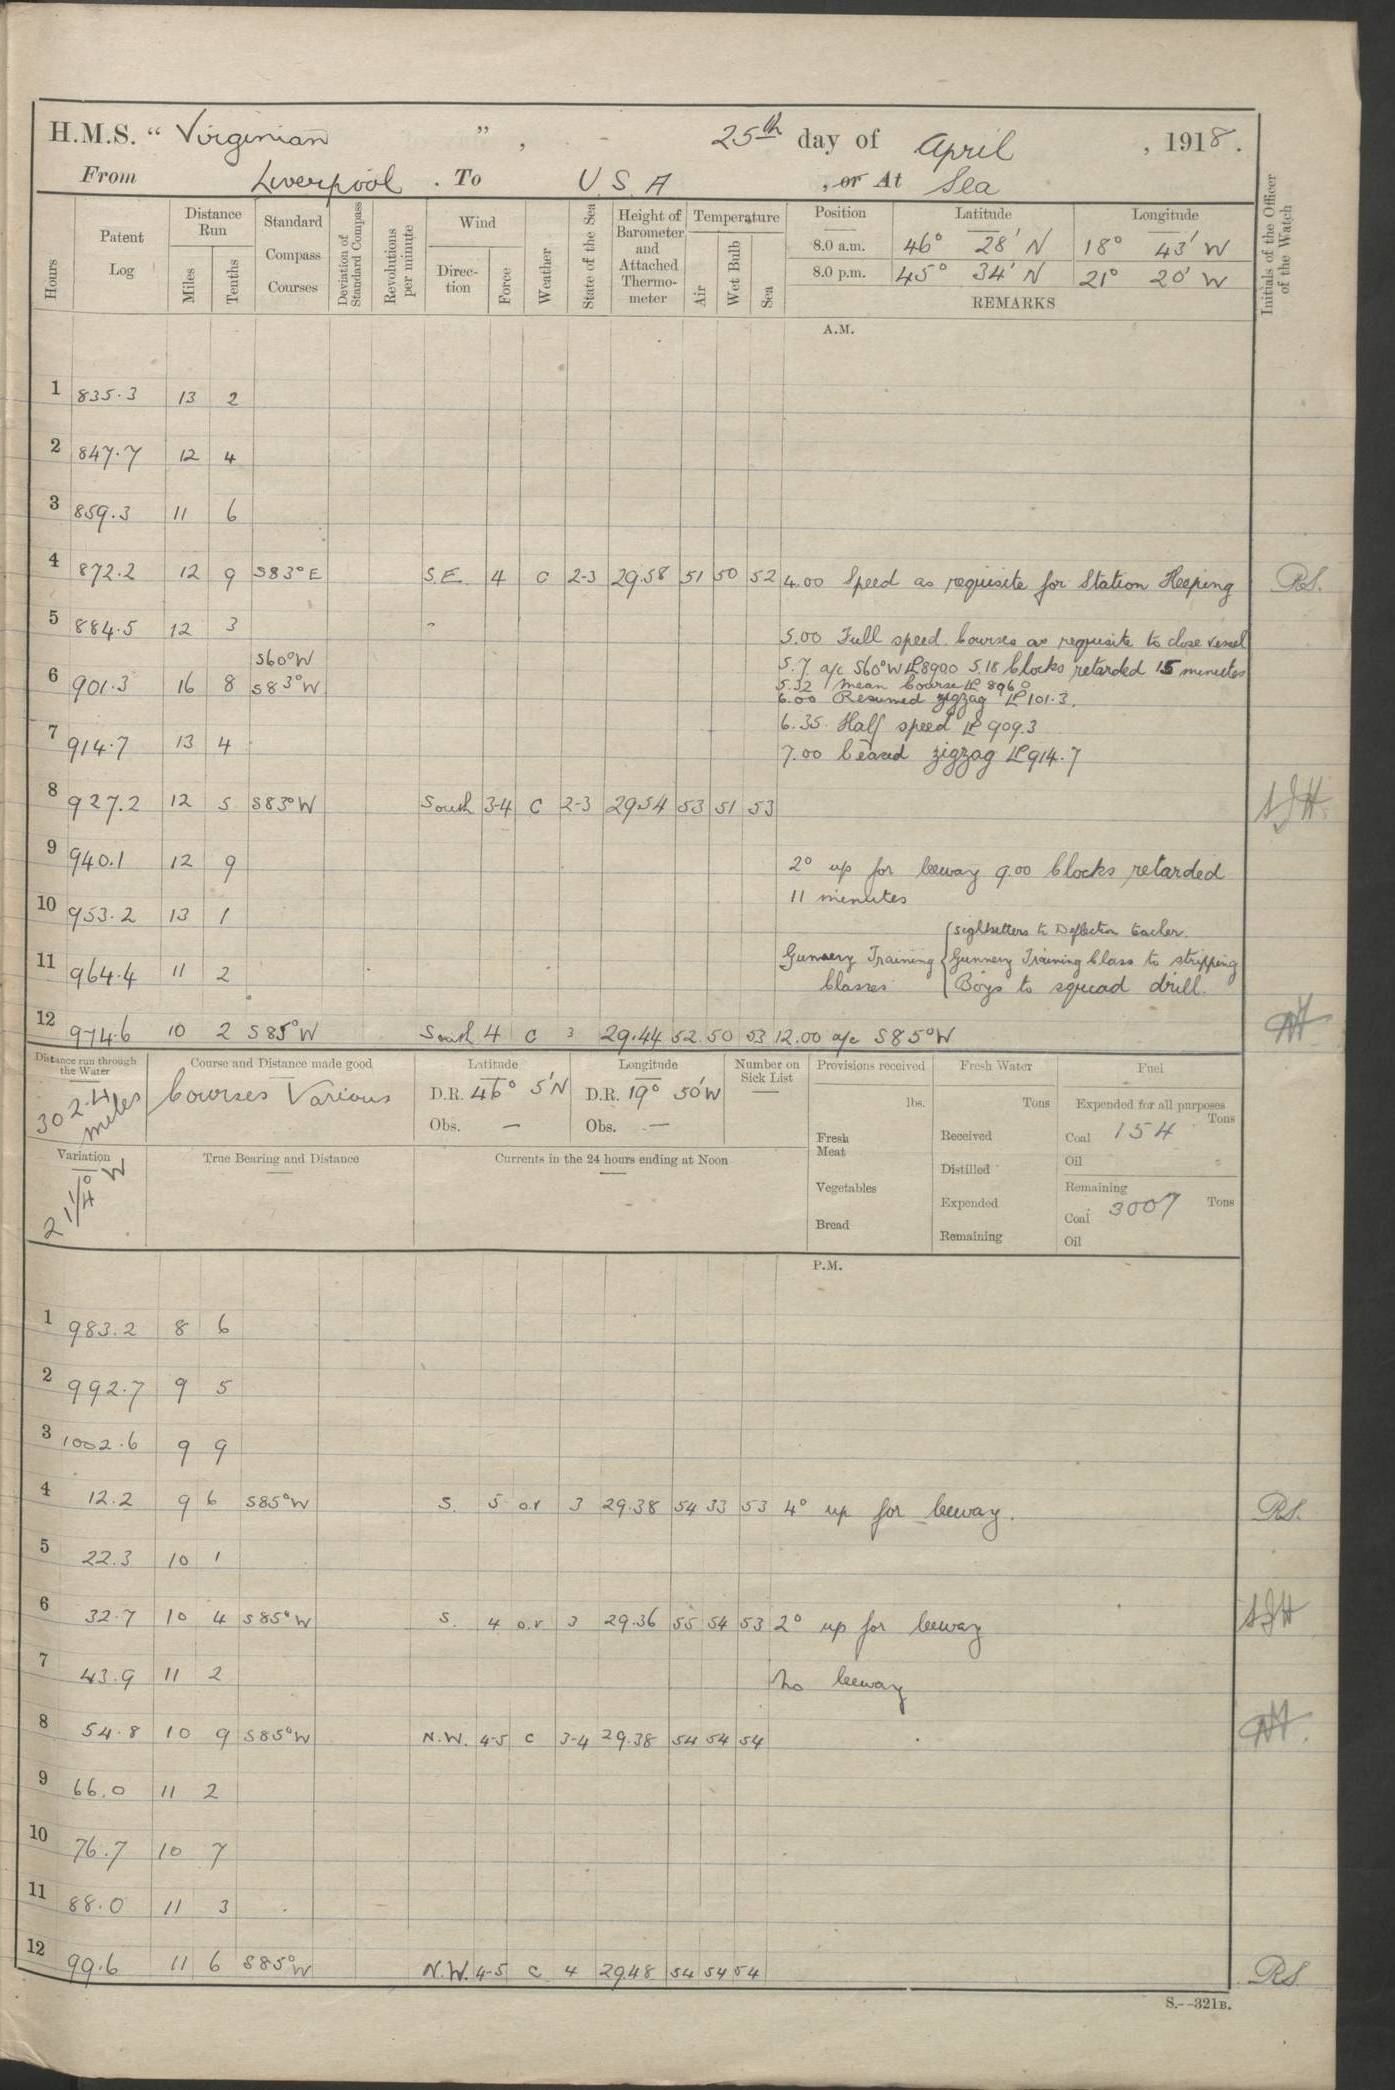 H.M.S. " Virginian " , - 25th day of April , 1918 .
From Liverpool . To U S A , or At Sea
Hours
Patent Log
Distance Run
Miles
Tenths
Standard Compass Courses
Deviation of Standard Compass
Revolutions per minute
Wind
Direc-tion
Force
Weather
State of the Sea
Height of Barometer and Attached Thermo-meter
Temperature
Air
Wet Bulb
Sea
Position Latitude Longitude
8.0 a.m. 46° 28' N 18° 43' W
8.0 p.m. 45° 34' N 21° 20' W
REMARKS
Initials of the Officer of the Watch
A.M.
1 835.3 13 2
2 847.7 12 4
3 859.3 11 6
4 872.2 12 9 S83°E S.E. 4 C 2-3 29.58 51 50 52 4.00 Speed as requisite for Station Keeping RS.
5 884.5 12 3
5.00 Full speed. Courses as requisite to close vessel
S60°W 5.7 a/c S60°W LP 8900 5.18 Clocks retarded 15 minutes
6 901.3 16 8 S83°W 5.32 mean Course LP 896.0
6.00 Resumed zigzag LP 101.3.
6.35. Half speed LP 909.3
7 914.7 13 4 7.00 Ceased zigzag LP 914.7
8 927.2 12 5 S83°W South 3-4 C 2-3 29.54 53 51 53
9 940.1 12 9 2° up for leeway 9.00 Clocks retarded
11 minutes
10 953.2 13 1
Sightsetters to Deflection teacher.
11 964.4 11 2 Gunnery Training Classes { Gunnery Training Class to stripping
Boys to squad drill.
12 974.6 10 2 S85°W South 4 C 3 29.44 52 50 53 12.00 a/c S85°W
Distance run through the Water
302.4 miles
Course and Distance made good
Courses Various
Latitude
D.R. 46° 5'N
Obs. —
Longitude
D.R. 19° 50'W
Obs. —
Number on Sick List
—
Provisions received
lbs.
Fresh Meat
Vegetables
Bread
Fresh Water
Tons
Received
Distilled
Expended
Remaining
Fuel
Expended for all purposes
Tons
Coal 154
Oil
Remaining
Coal 3007 Tons
Oil
Variation
21/4° W
True Bearing and Distance
Currents in the 24 hours ending at Noon
P.M.
1 983.2 8 6
2 992.7 9 5
3 1002.6 9 9
4 12.2 9 6 S85°W S. 5 o.r 3 29.38 54 33 53 4° up for leeway. RS.
5 22.3 10 1
6 32.7 10 4 S85°W S. 4 o.r 3 29.36 55 54 53 2° up for leeway
7 43.9 11 2 No leeway
8 54.8 10 9 S85°W N.W. 4-5 C 3-4 29.38 54 54 54
9 66.0 11 2
10 76.7 10 7
11 88.0 11 3
12 99.6 11 6 S85°W N.W. 4-5 C 4 29.48 54 54 54 RS
S.--321B.